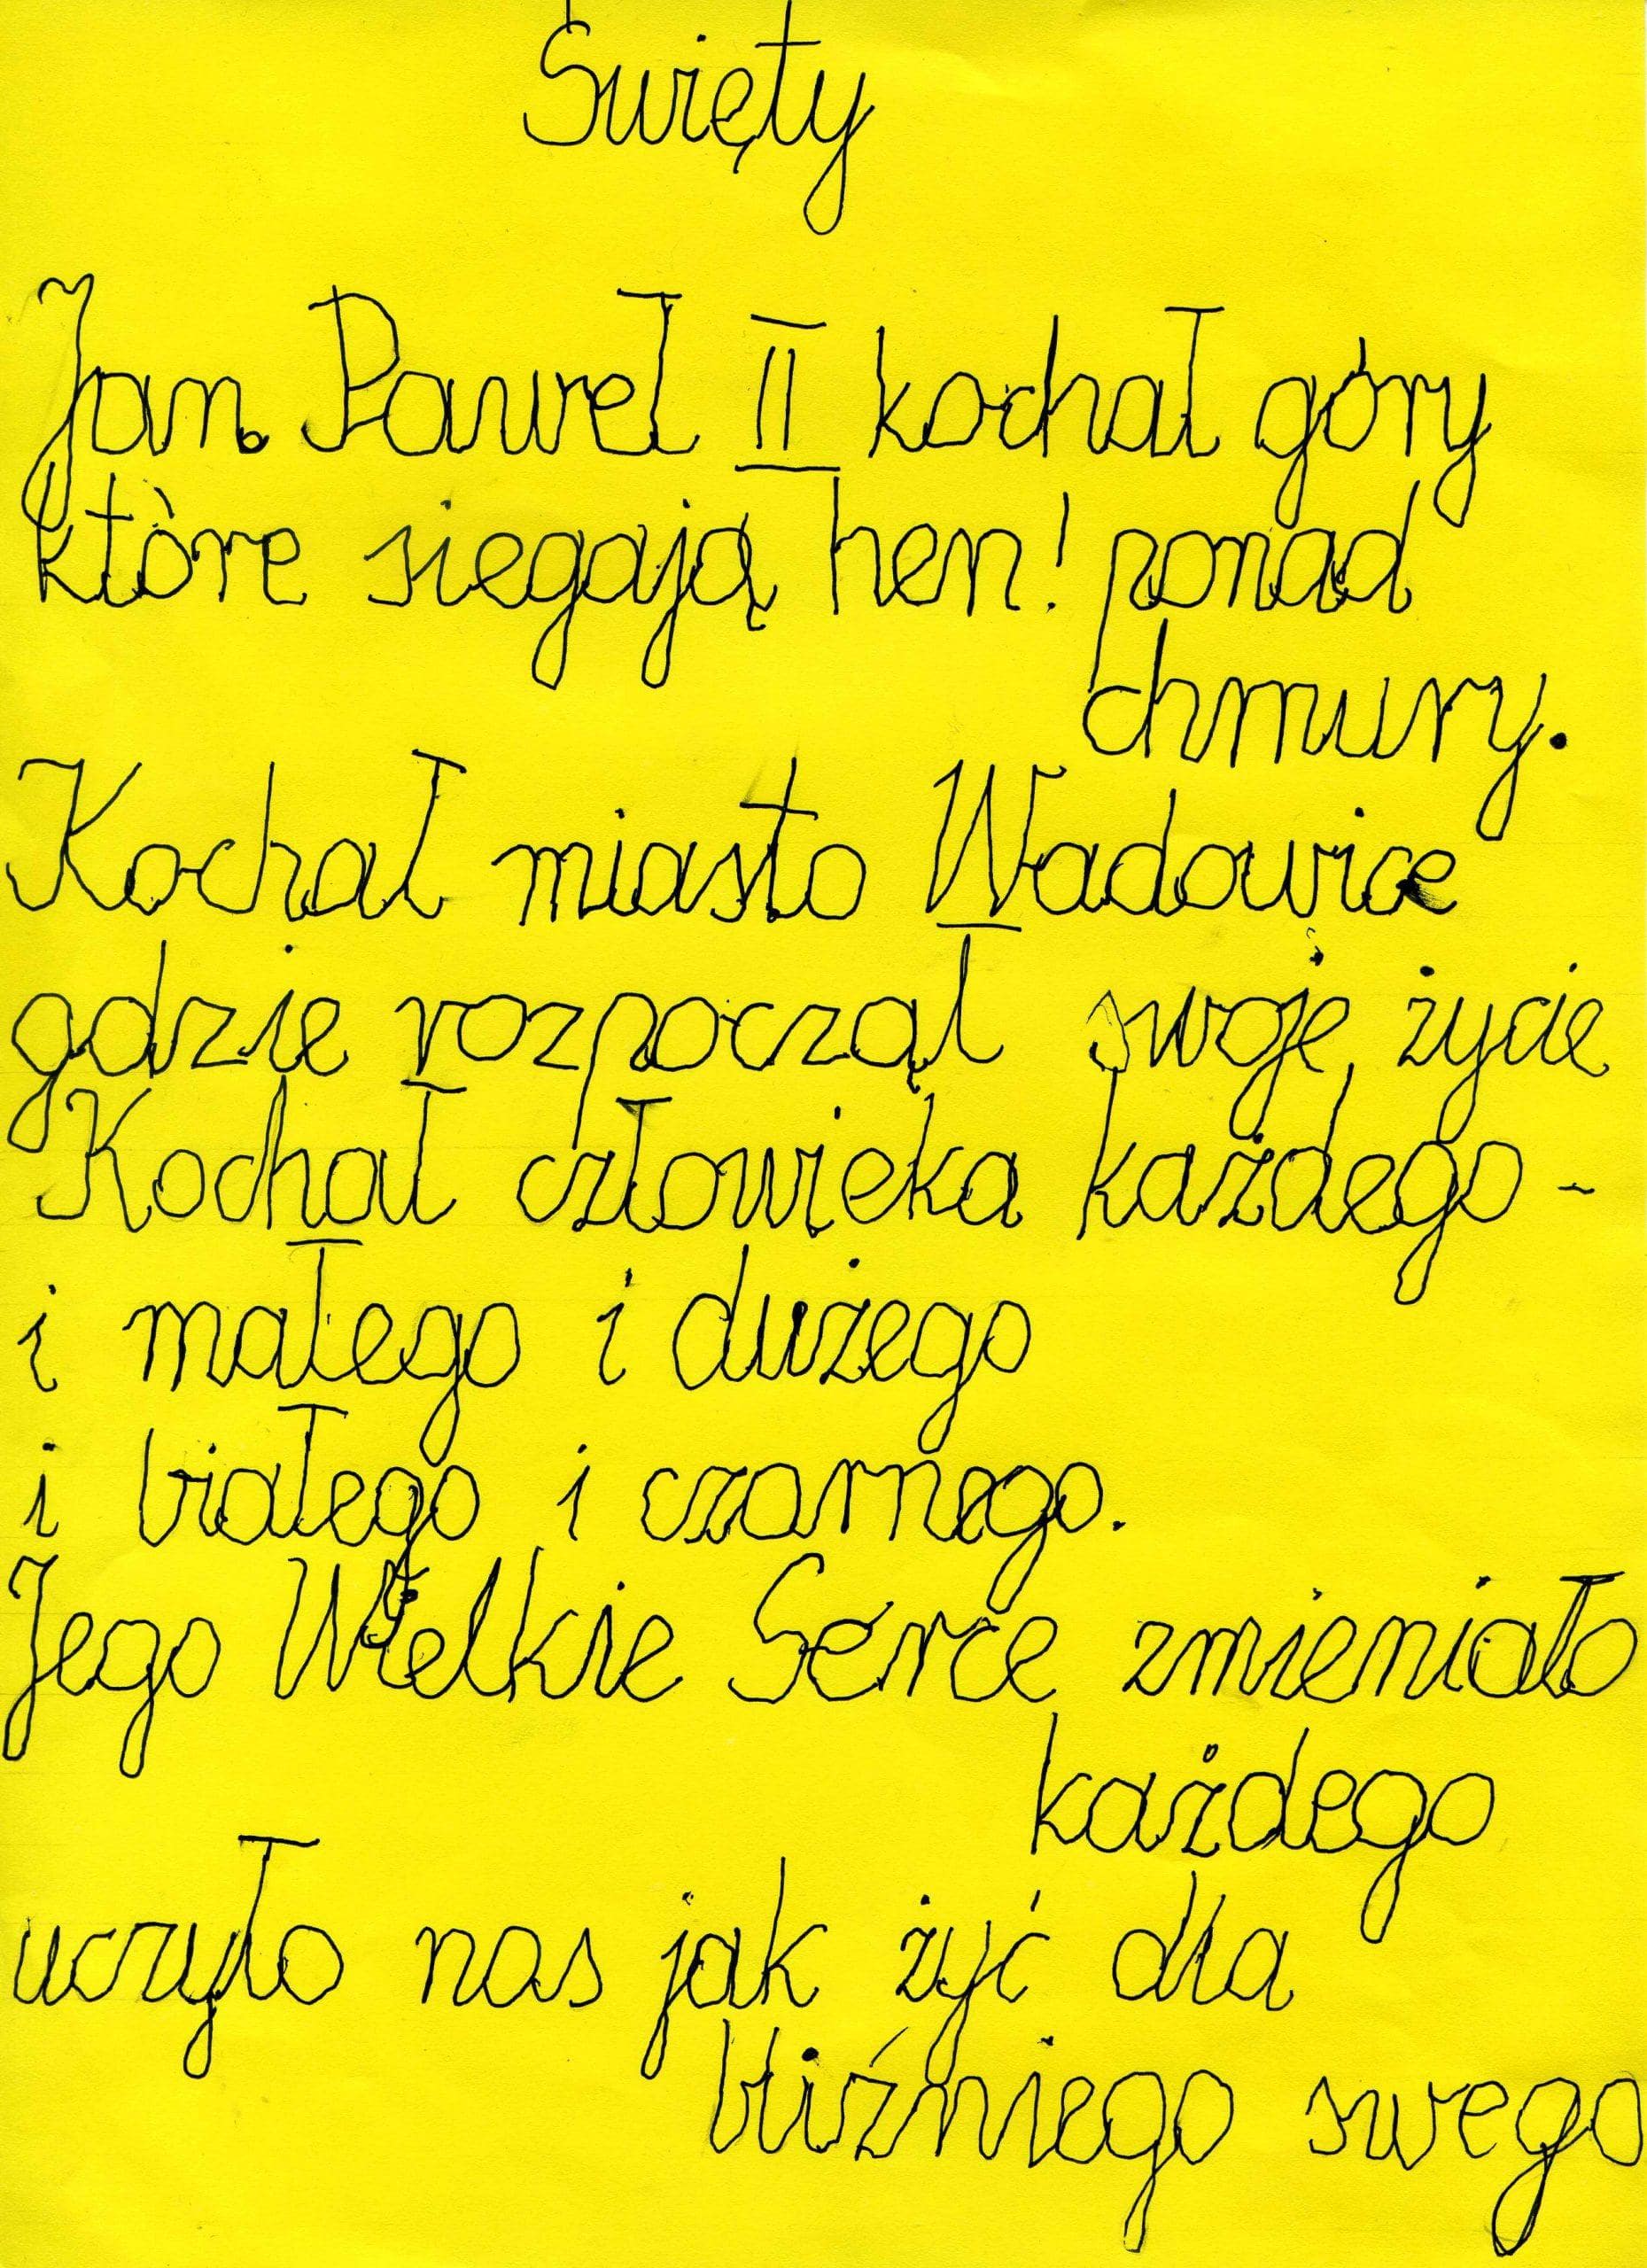 Święty
Jan Paweł II kochał góry
które siegają hen! ponad
chmury.
Kochał miasto Wadowice
gdzie rozpoczął swoje życie
Kochał człowieka każdego -
i małego i dużego
i białego i czarnego.
Jego Wielkie Serce zmieniało
każdego
uczyło nas jak żyć dla
bliźniego swego